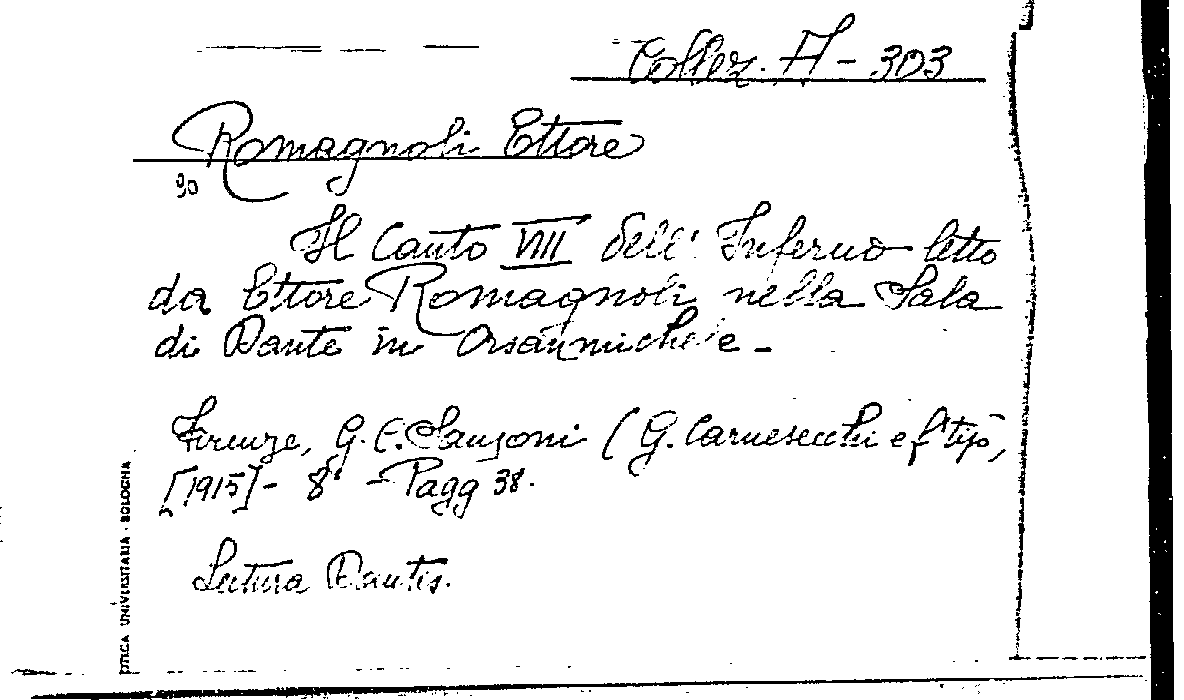 Collez. A - 303
Romagnoli Ettore
90
Il Canto VIII dell' Inferno letto
da Ettore Romagnoli nella Sala
di Dante in Orsanmichele -
Firenze, G. C. Sansoni (G. Carnesecchi e f. tip),
[1915] - 8° - Pagg 38.
Lectura Dantis.
UNIVERSITARIA - BOLOGNA